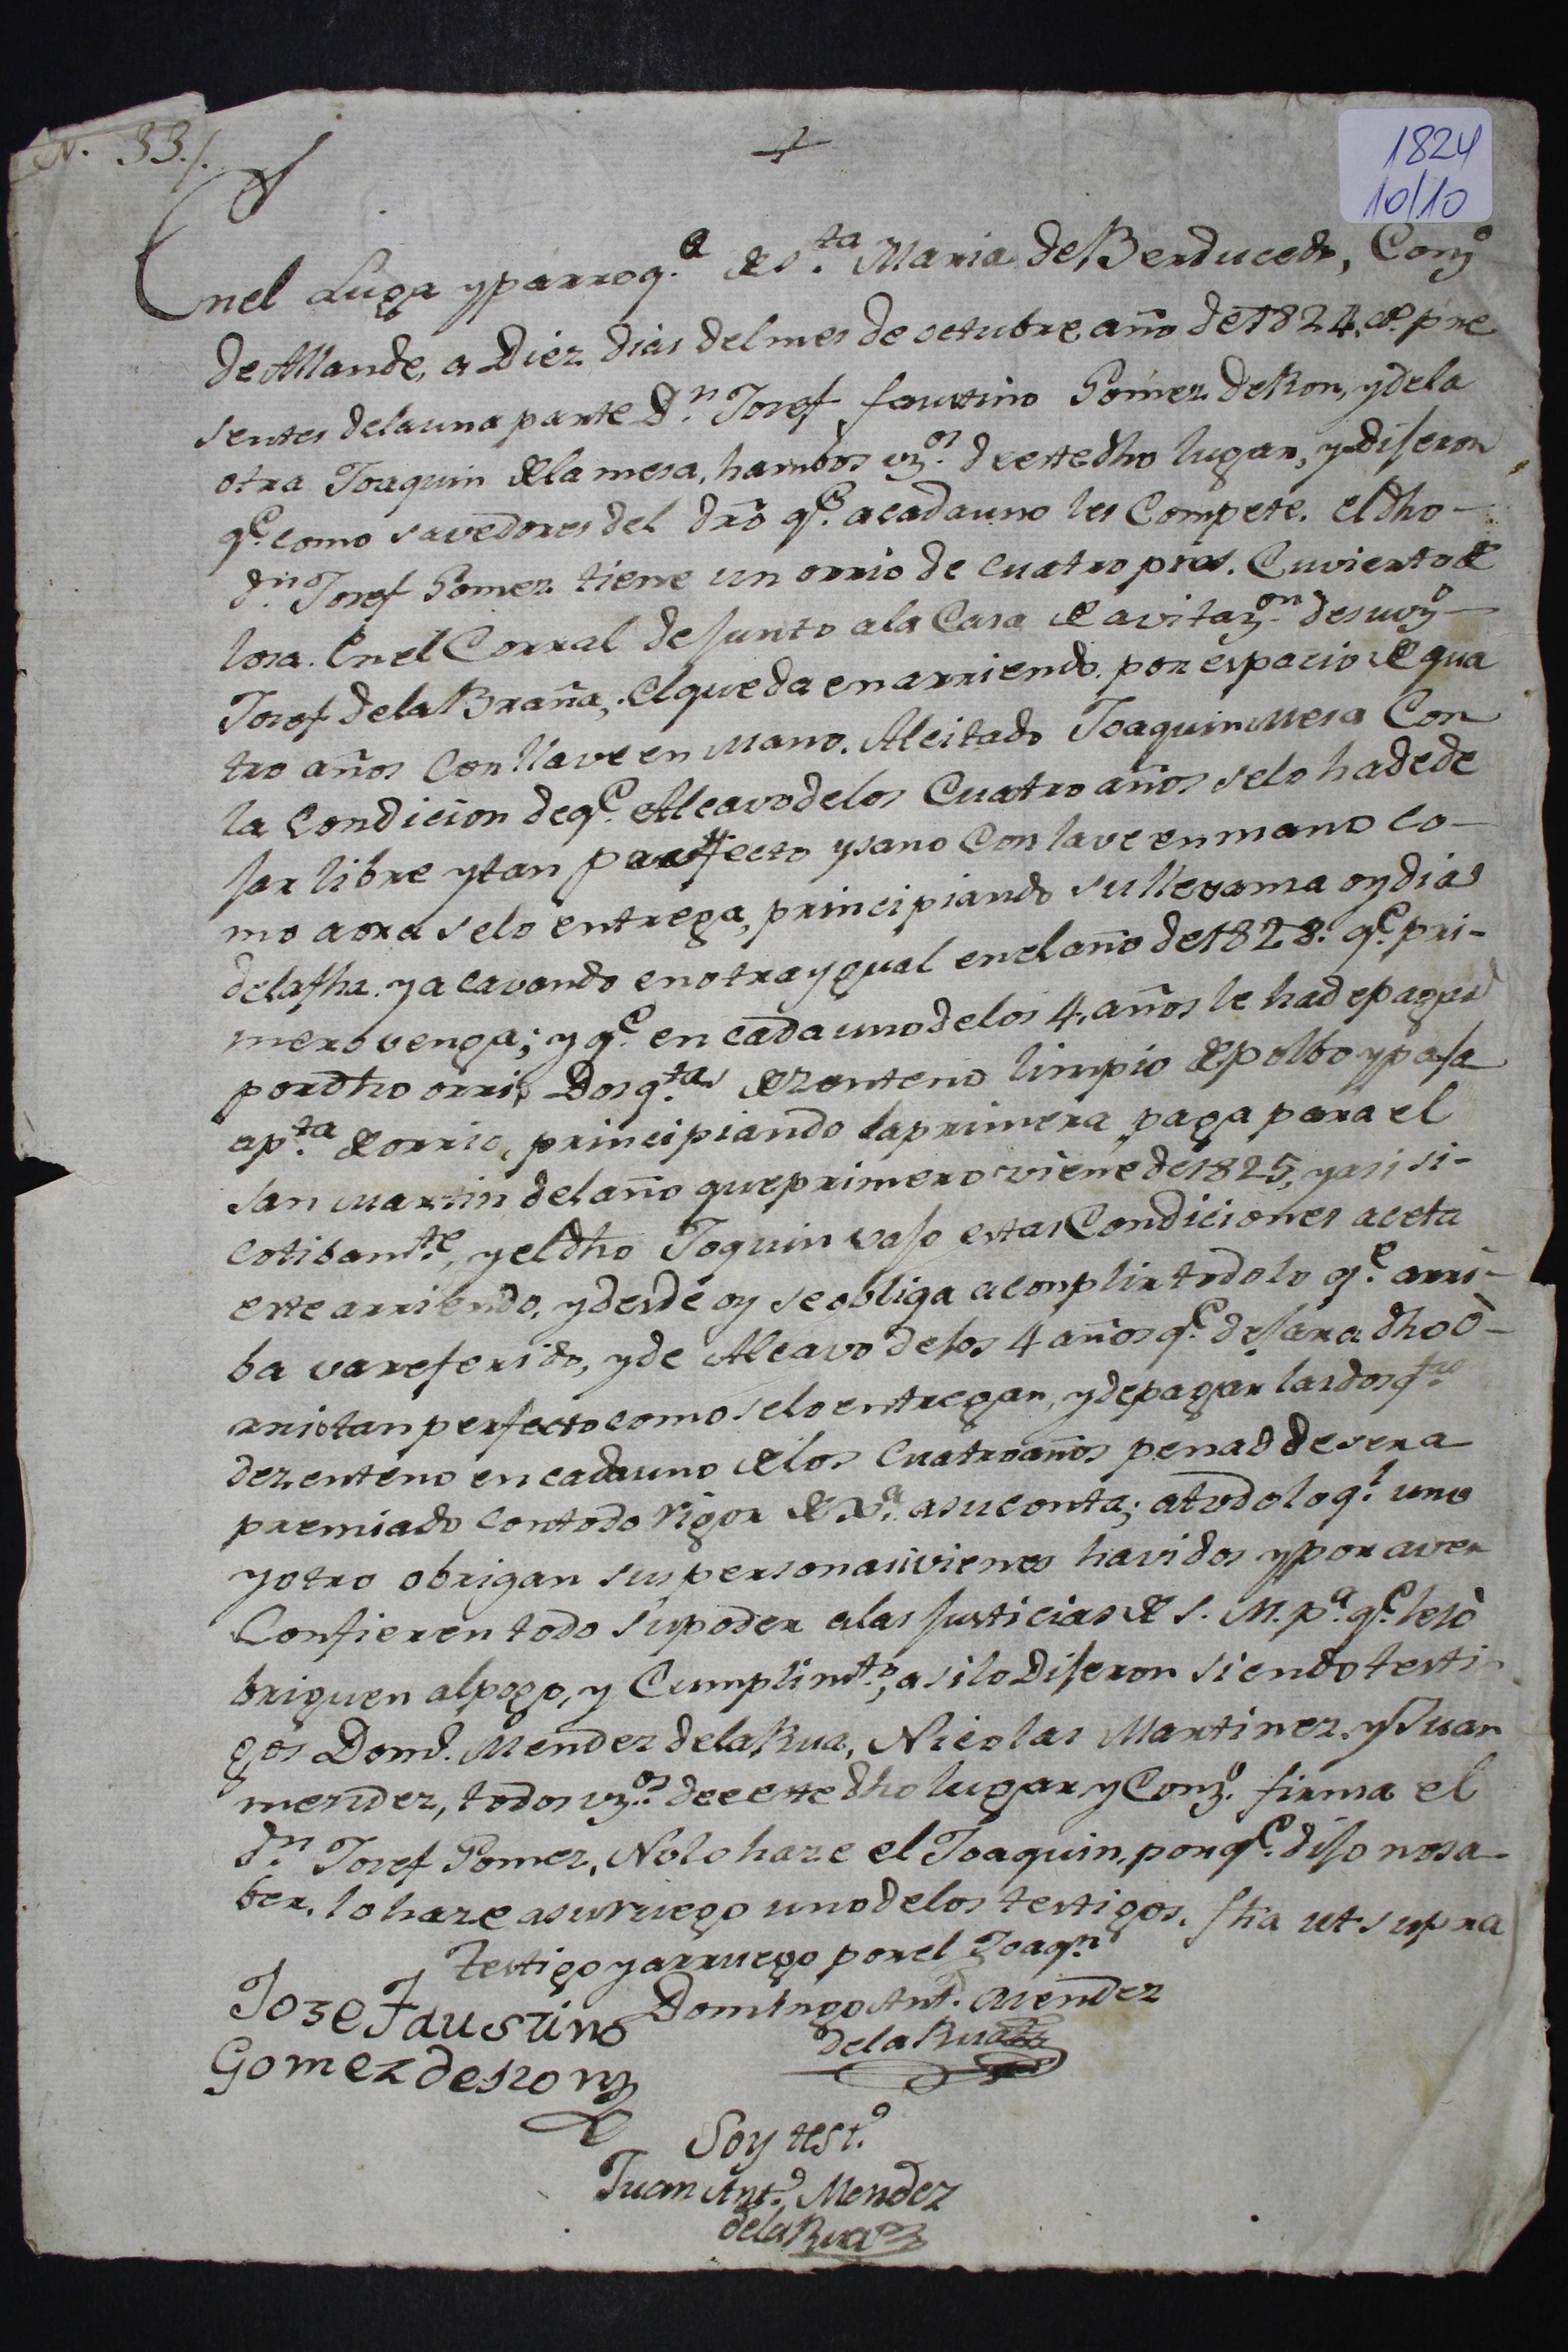 N. 33./.
+
1824
10/10
En el Luga y parroq.a de S.ta Maria de Berducedo, Conz.o
de Allande, a Diez dias del mes de octubre año de 1824 pre
sentes de la una parte D.n Josef faustino Gomez de Ron, y de la
otra Joaquin de la mesa, hambos vz.os de este dho lugar, y diseron
q.e como savedores del dro q.e a cada uno les Compete. el dho
d.n Josef Gomez tiene un orrio de cuatro pies. Cuvierto de
losa. En el Corral de junto a la Casa de avitaz.on de su vz.o
Josef de la Braña, el que da en arriendo por espacio de qua
tro años Con llave en Mano. Al citado Joaquin Mesa Con
la Condicion de q.e Al cavo de los Cuatro años se lo ha de de
jar libre y tan perffecto y sano Con lave en mano co-
mo aora se lo entrega, principiando su llevama oy dia
de la fha. y acavando en otra ygual en el año de 1828. q.e pri-
mero venga; y q.e en cada uno de los 4, años le ha de pagar
por dho orrio Dos q.tas de zenteno limpio de polbo y paja
a p.ta de orrio, principiando la primera paga para el
San Martin del año que primero viene de 1825, y asi si-
cotibam.te, y el dho Joquin vajo estas Condiciones aceta
este arriendo, y desde oy se obliga a complir todo lo q.e arri-
ba va referido, y de Al cavo de los 4 años q.e dejara dho o-
rrio tan perfecto como se lo entregan, y de pagar las dos q.tas
de zenteno en cada uno de los cuatro años pena d de ser a
premiado con todo rigor de a su conta; a todo lo q.e uno
y otro obrigan sus personas i vienes havidos y por aver
Confieren todo su poder a las justicias de S. M. p.a q.e les o
briguen al pogo, y Cumplim.to, asi lo Diseron siendo testi-
gos Dom.o Mendez de la Rua, Nicolas Martinez. y Juan
mendez, todos vz.os de eeste dho lugar y Conz.o firma el
d.n Josef Gomez, No lo haze el Joaquin, porq.e diso no sa-
ber, lo haze a su ruego uno de los testigos, fha ut supra
Testigo y arruego por el Joaq.n
Jose Faustino Domingo Ant.o Mendez
Gomez de Ron de la Rua
Soy test.o
Juan Ant.o Mendez
de la Rua